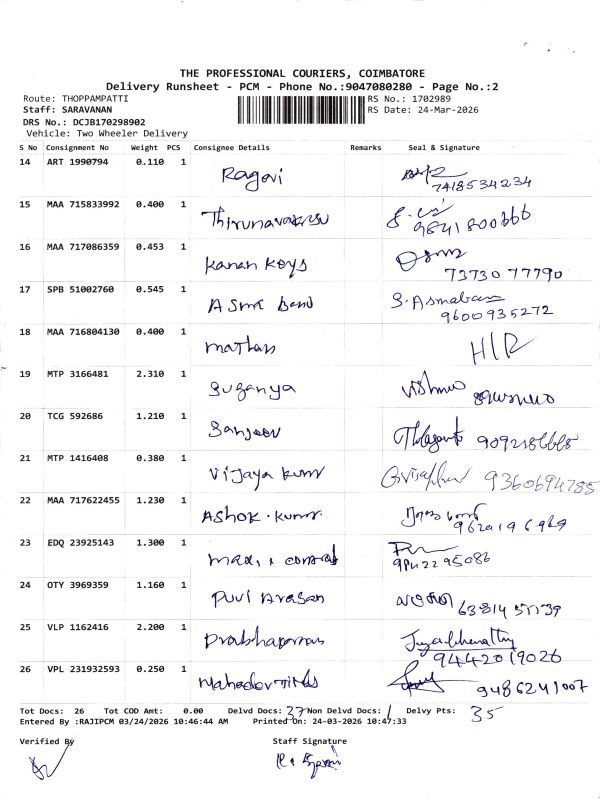 THE PROFESSIONAL COURIERS, COIMBATORE
Delivery Runsheet - PCM - Phone No.:9047080280 - Page No.:2
Route: THOPPAMPATTI
RS No.: 1702989
Staff: SARAVANAN
RS Date: 24-Mar-2026
DRS No.: DCJB170298902
Vehicle: Two Wheeler Delivery
S No Consignment No Weight PCS Consignee Details Remarks Seal & Signature
14 ART 1990794 0.110 1 Ragavi
7418534234
15 MAA 715833992 0.400 1
9841800666
16 MAA 717086359 0.453 1 Kanan Keys
73730 77790
17 SPB 51002760 0.545 1 Asma
9600935272
18 MAA 716804130 0.400 1 H/R
19 MTP 3166481 2.310 1 Suganya Vishnu
20 TCG 592686 1.210 1 Sanjeev
21 MTP 1416408 0.380 1 Vijaya Kumar 9360694785
22 MAA 717622455 1.230 1 Ashok. Kumar
23 EDQ 23925143 1.300 1
9842295086
24 OTY 3969359 1.160 1 Puvi Arasan
25 VLP 1162416 2.200 1
9442019026
26 VPL 231932593 0.250 1
9486241007
Tot Docs: 26 Tot COD Amt: 0.00 Delvd Docs: 37 Non Delvd Docs: 1 Delvy Pts: 35
Entered By :RAJIPCM 03/24/2026 10:46:44 AM Printed On: 24-03-2026 10:47:33
Verified By Staff Signature